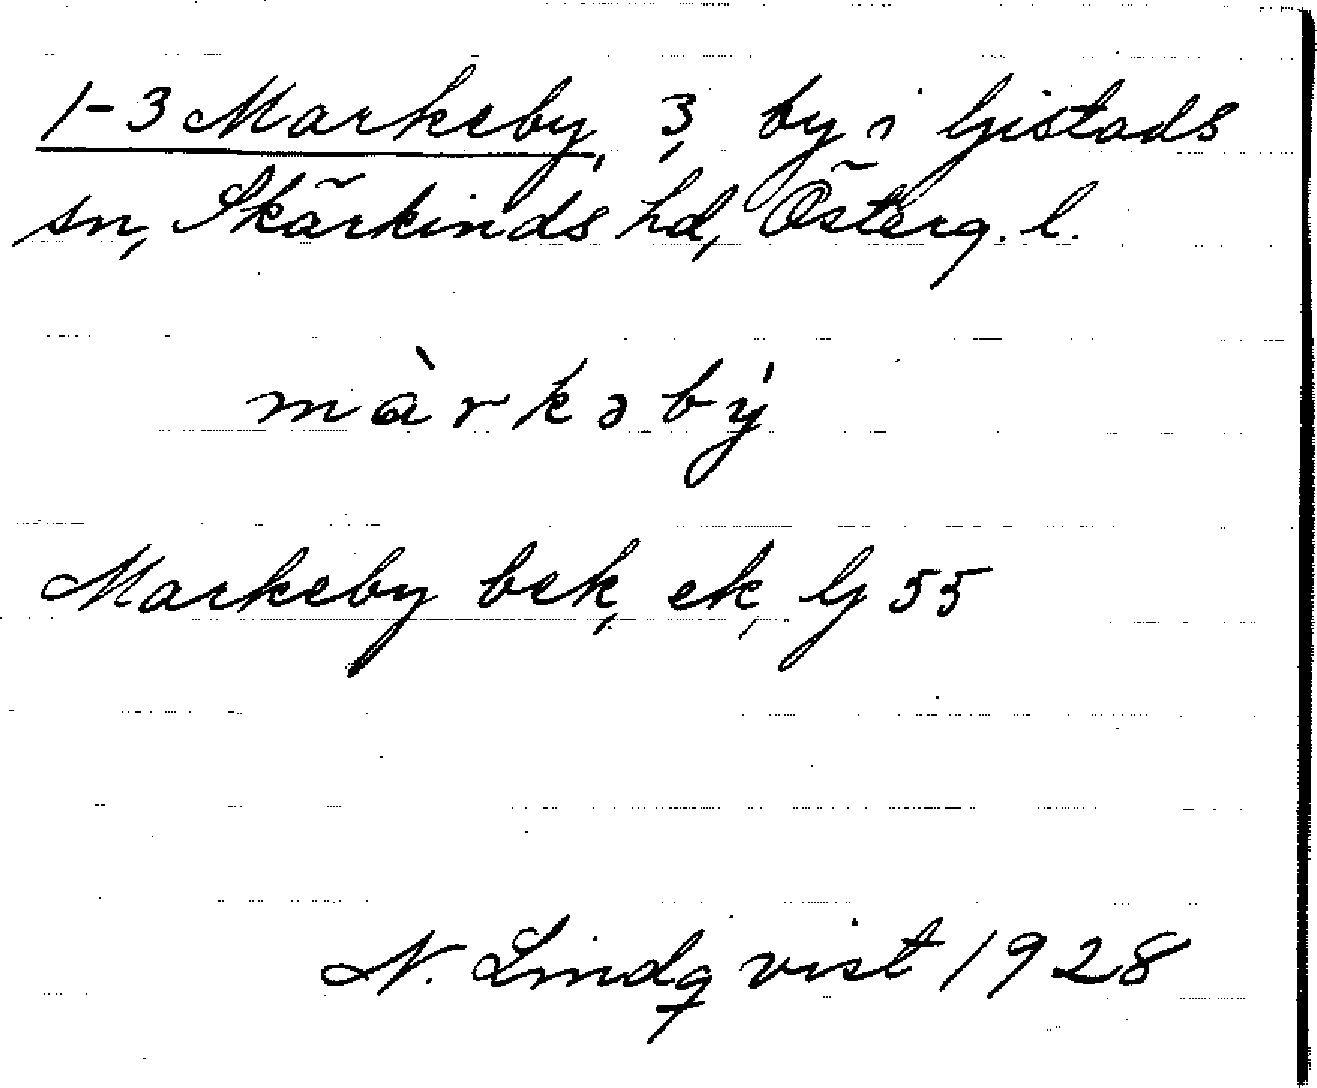 1-3 Markeby, 3, by i Gistads
sn, Skärkinds hd, Österg. l.
màrkəbý
Markeby bek, ek, G 55
N. Lindqvist 1928